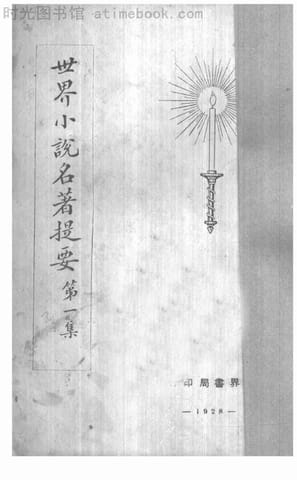 时光图书馆 atimebook.com
世界小說名著提要 第一集
印局書界
—1928—